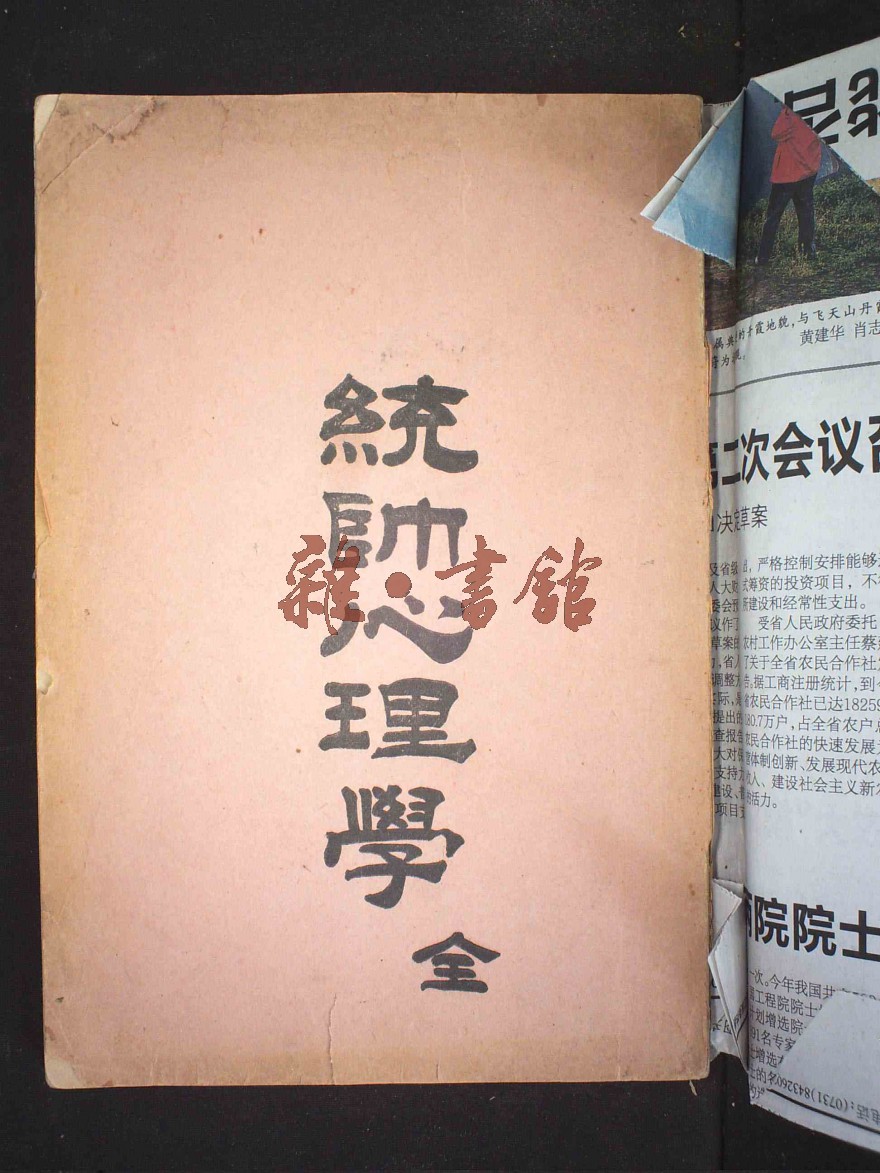 統帥心理學
全
雜·書館
黄建华 肖志
第二次会议召
决定草案
严格控制安排能够
筹资的投资项目，不
建设和经常性支出。
受省人民政府委托
农村工作办公室主任蔡
了关于全省农民合作社
据工商注册统计，到
省农民合作社已达18259
80.7万户，占全省农户总
农民合作社的快速发展
体制创新、发展现代农
收入、建设社会主义新农
活力。
两院院士
一次。今年我国共
工程院院士
计划增选院
91名专家
(0731)843260